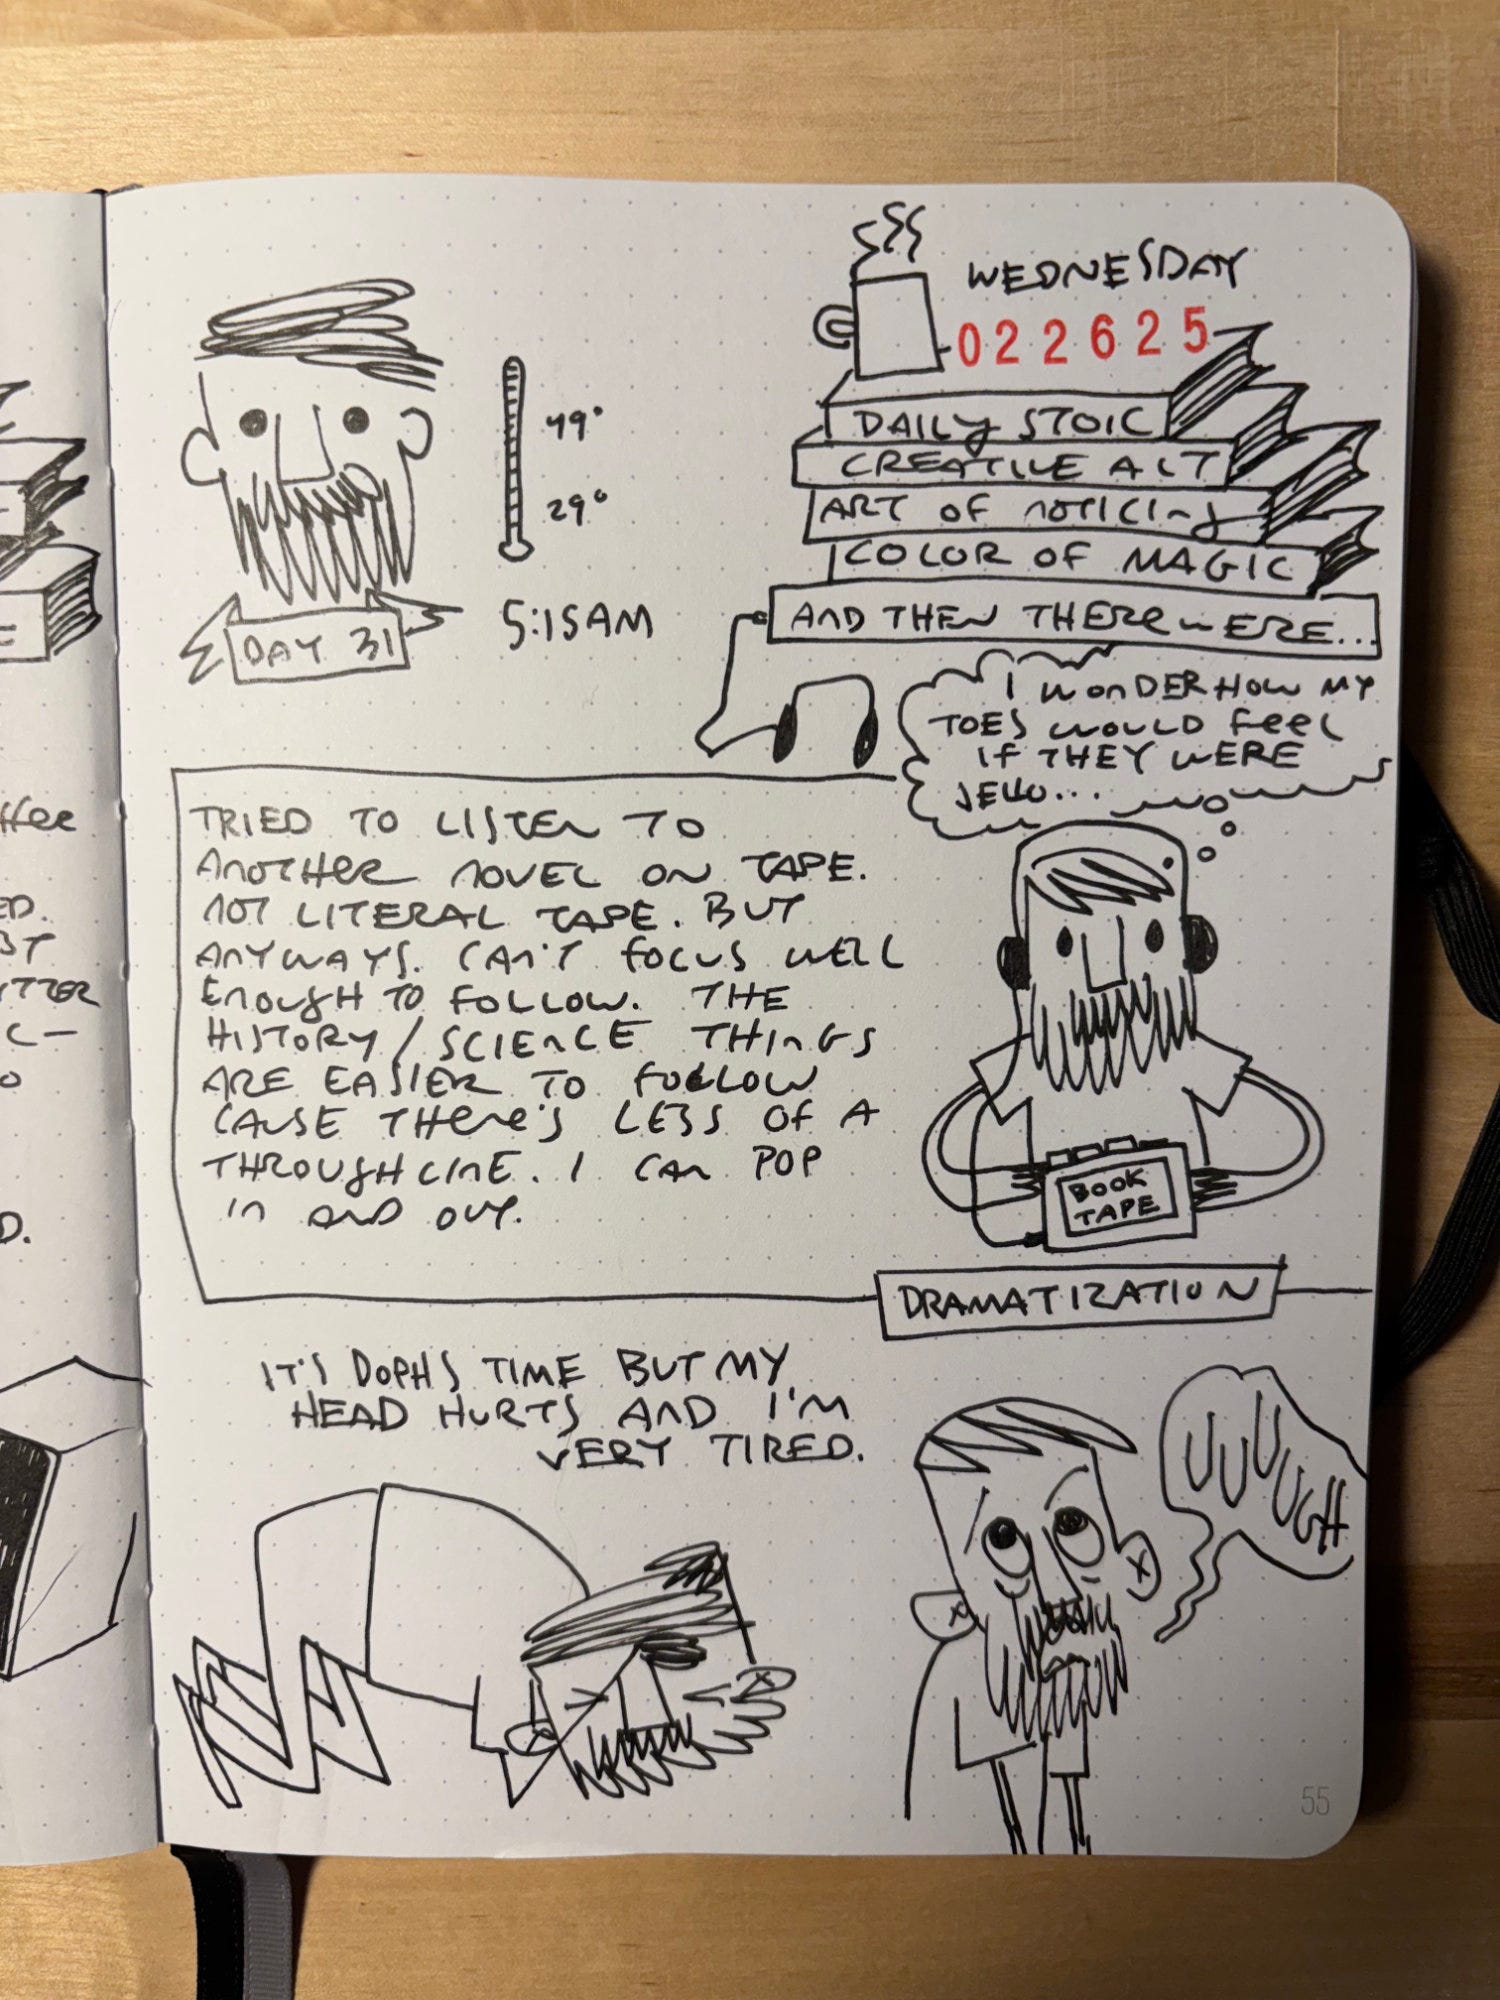 WEDNESDAY
022625
DAILY STOIC
CREATIVE ACT
ART OF NOTICING
COLOR OF MAGIC
AND THEN THERE WERE...
49°
29°
5:15AM
DAY 31
I WONDER HOW MY
TOES WOULD FEEL
IF THEY WERE
JELLO...
TRIED TO LISTEN TO
ANOTHER NOVEL ON TAPE.
NOT LITERAL TAPE. BUT
ANYWAYS. CAN'T FOCUS WELL
ENOUGH TO FOLLOW. THE
HISTORY/SCIENCE THINGS
ARE EASIER TO FOLLOW
CAUSE THERE'S LESS OF A
THROUGHLINE. I CAN POP
IN AND OUT.
BOOK
TAPE
DRAMATIZATION
IT'S DOPHS TIME BUT MY
HEAD HURTS AND I'M
VERY TIRED.
UUUUGH
55